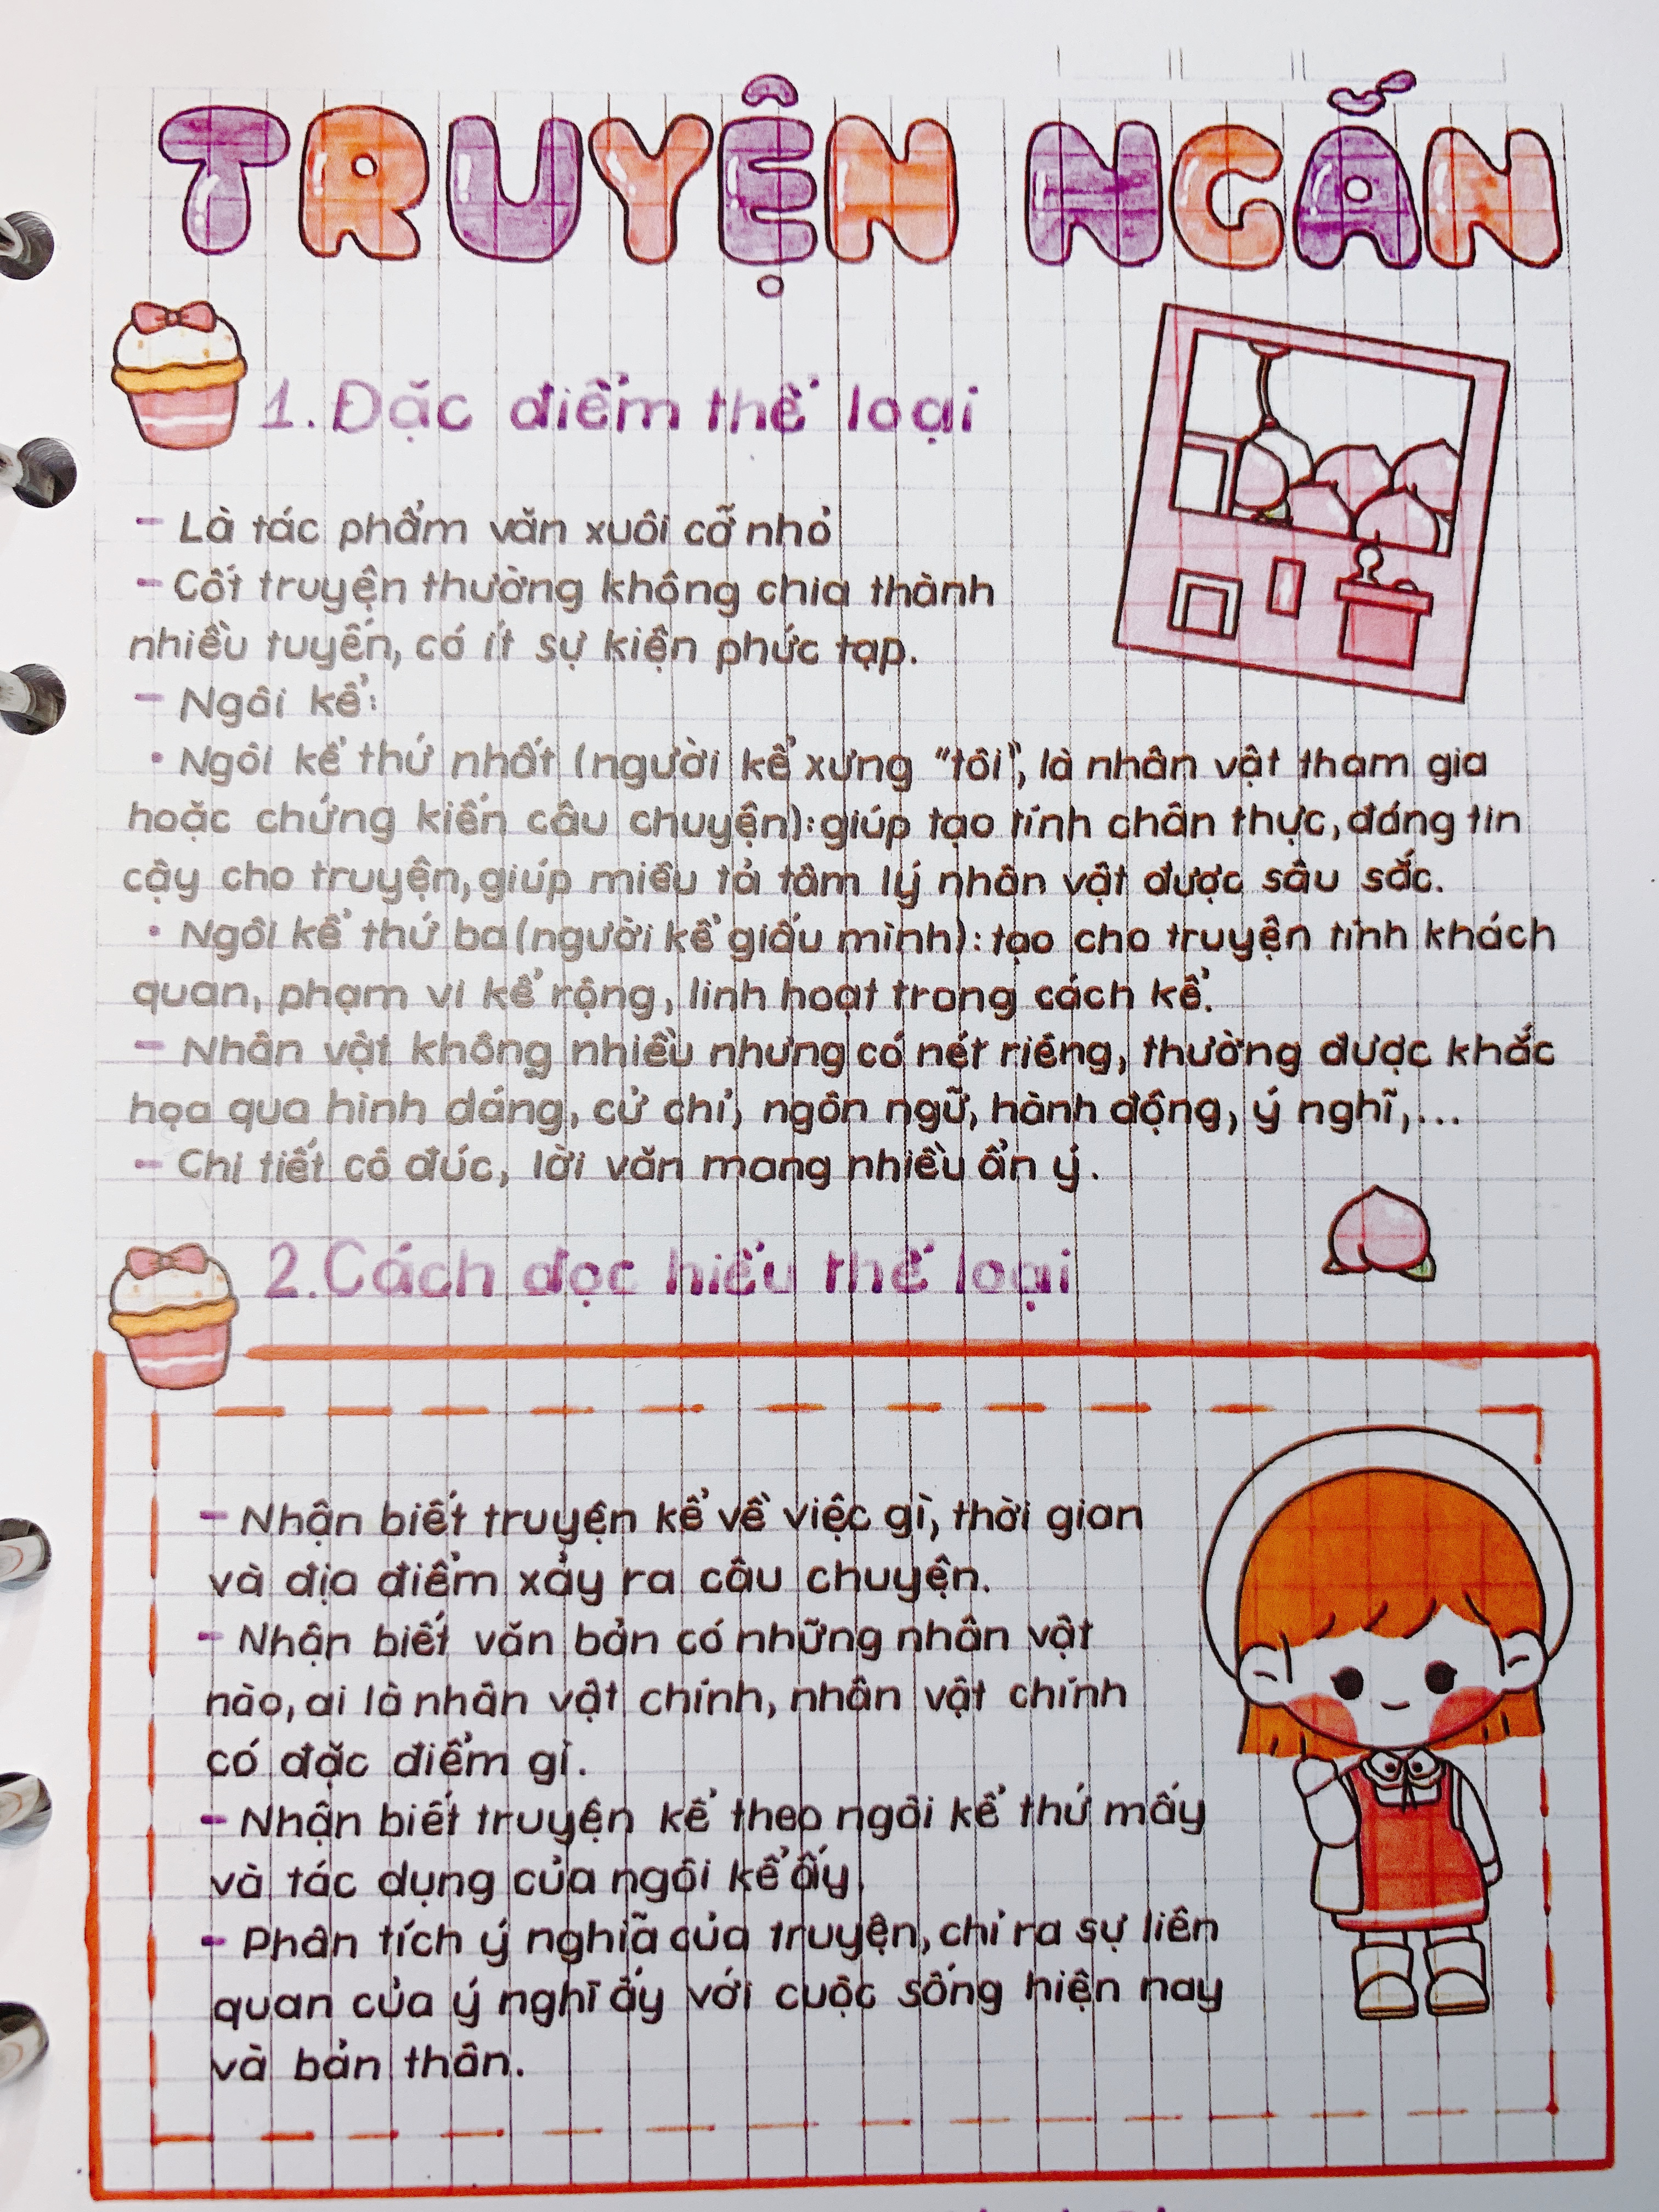 TRUYỆN NGẮN
1. Đặc điểm thể loại
- Là tác phẩm văn xuôi cỡ nhỏ
- Cốt truyện thường không chia thành
nhiều tuyến, có ít sự kiện phức tạp.
- Ngôi kể:
• Ngôi kể thứ nhất (người kể xưng "tôi", là nhân vật tham gia
hoặc chứng kiến câu chuyện): giúp tạo tính chân thực, đáng tin
cậy cho truyện, giúp miêu tả tâm lý nhân vật được sâu sắc.
• Ngôi kể thứ ba (người kể giấu mình): tạo cho truyện tính khách
quan, phạm vi kể rộng, linh hoạt trong cách kể.
- Nhân vật không nhiều nhưng có nét riêng, thường được khắc
họa qua hình dáng, cử chỉ, ngôn ngữ, hành động, ý nghĩ,...
- Chi tiết cô đúc, lời văn mang nhiều ẩn ý.
2. Cách đọc hiểu thể loại
- Nhận biết truyện kể về việc gì, thời gian
và địa điểm xảy ra câu chuyện.
- Nhận biết văn bản có những nhân vật
nào, ai là nhân vật chính, nhân vật chính
có đặc điểm gì.
- Nhận biết truyện kể theo ngôi kể thứ mấy
và tác dụng của ngôi kể ấy.
- Phân tích ý nghĩa của truyện, chỉ ra sự liên
quan của ý nghĩ ấy với cuộc sống hiện nay
và bản thân.